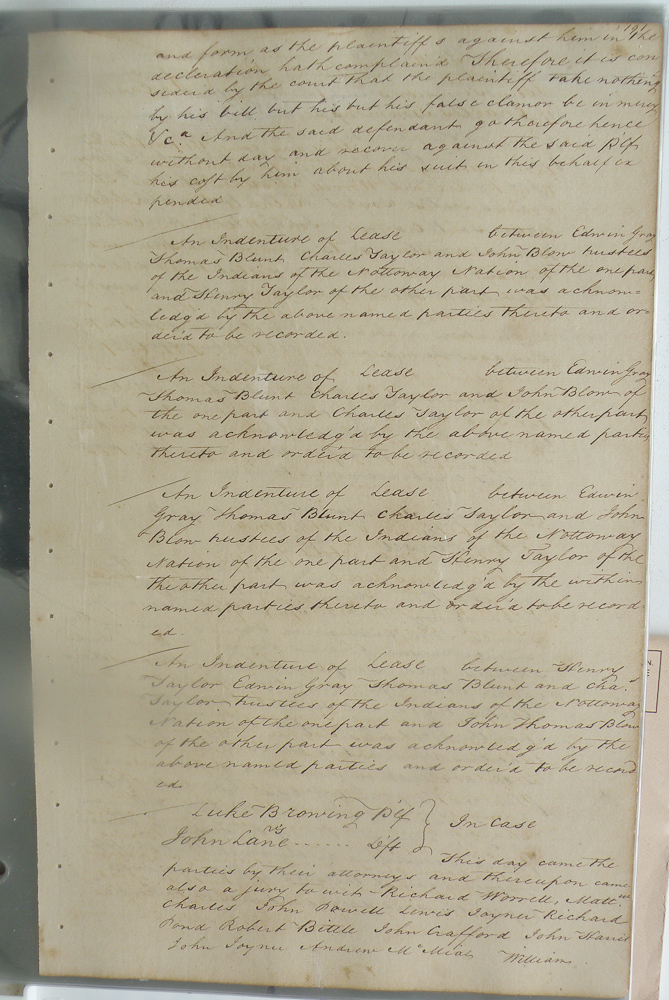 and form as the plaintiff s against him in the
decleration hath complain'd Therefore it is con
siderd by the court that the plaintiff take nothing
by his bill but his but his false clamor be in mercy
&c.a And the said defendant go therefore hence
without day and recover against the said Plf
his cost by him about his suit in this behalf ex
pended
An Indenture of Lease between Edwin Gray
Thomas Blunt Charles Taylor and John Blow trustees
of the Indians of the Nottoway Nation of the one part
and Henry Taylor of the other part was acknow=
ledg'd by the above named parties thereto and or-
der'd to be recorded.
An Indenture of Lease between Edwin Gray
Thomas Blunt Charles Taylor and John Blow of
the one part and Charles Taylor of the other part
was acknowledg'd by the above named parties
thereto and order'd to be recorded
An Indenture of Lease between Edwin
Gray Thomas Blunt Charles Taylor and John
Blow trustees of the Indians of the Nottoway
Nation of the one part and Henry Taylor of the
the other part was acknowledg'd by the within
named parties thereto and order'd to be record
ed.
An Indenture of Lease between Henry
Taylor Edwin Gray Thomas Blunt and Cha.s
Taylor trustees of the Indians of the Nottoway
Nation of the one part and John Thomas Blow
of the other part was acknowledg'd by the
above named parties and order'd to be record
ed.
Luke Browing Plf } In Case
vs
John Lane ...... Dft
This day came the
parties by their attorneys and thereupon came
also a jury to wit - Richard Worrell, Matt.w
Charles John Powell Lewis Joyner Richard
Pond Robert Bittle John Crafford John Harris
John Joyner Andrew McMial William